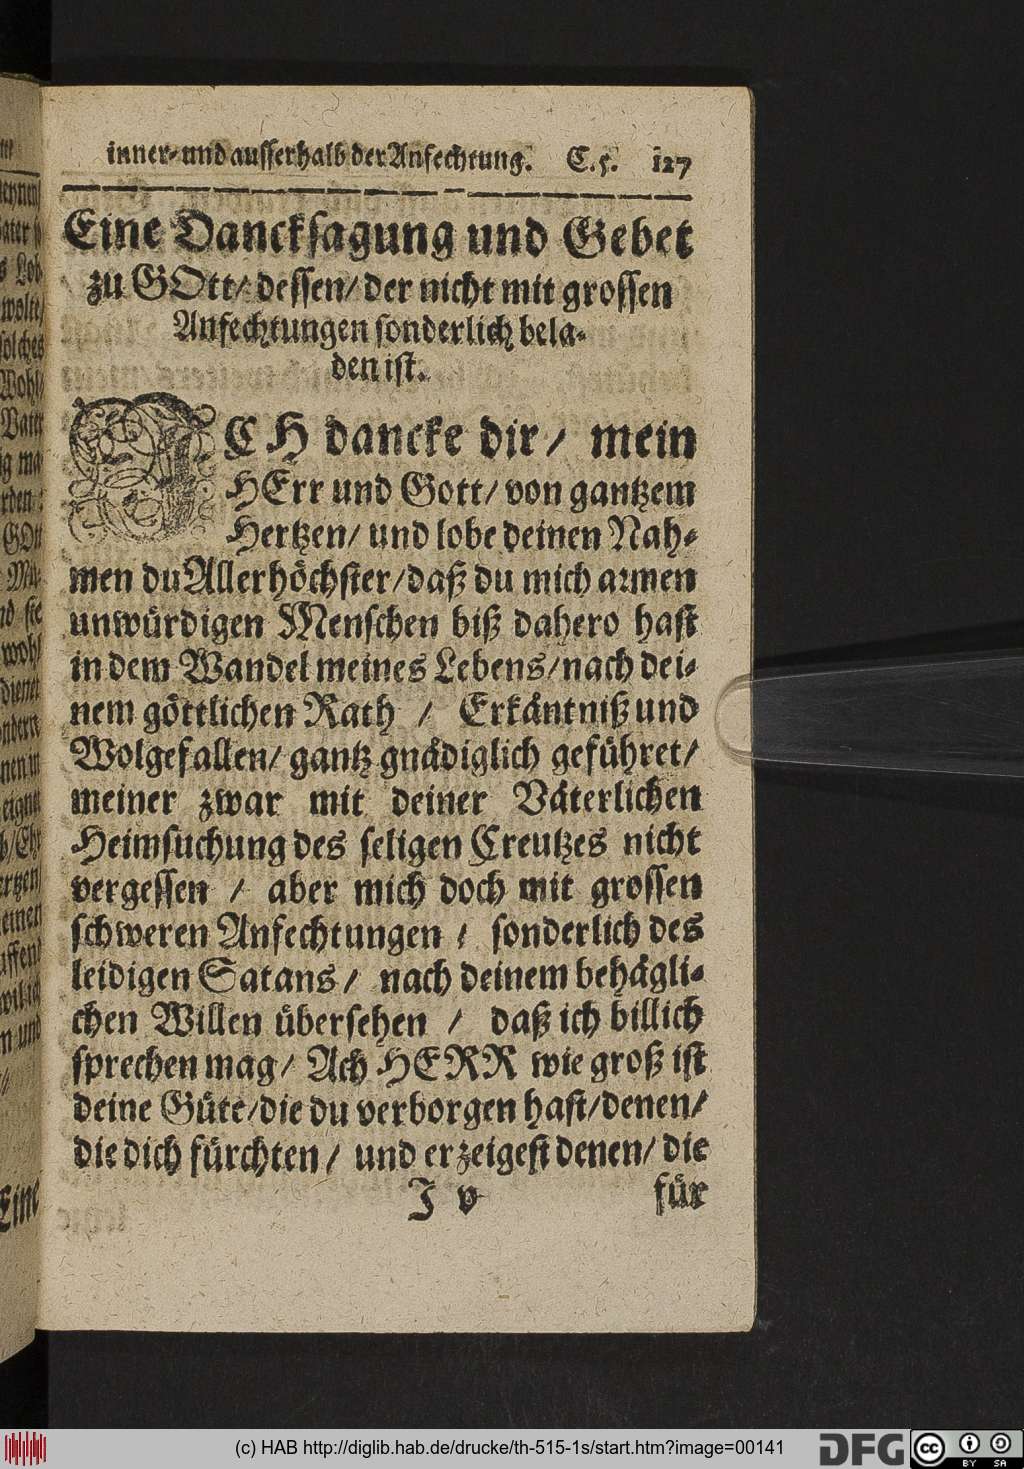 inner- und ausserhalb der Anfechtung. C. 5. 127
Eine Dancksagung und Gebet
zu GOtt/ dessen/ der nicht mit grossen
Anfechtungen sonderlich bela-
den ist.
ICH dancke dir/ mein
HErr und Gott/ von gantzem
Hertzen/ und lobe deinen Nah-
men du Allerhöchster/ daß du mich armen
unwürdigen Menschen biß dahero hast
in dem Wandel meines Lebens/ nach dei-
nem göttlichen Rath / Erkäntniß und
Wolgefallen/ gantz gnädiglich geführet/
meiner zwar mit deiner Väterlichen
Heimsuchung des seligen Creutzes nicht
vergessen / aber mich doch mit grossen
schweren Anfechtungen / sonderlich des
leidigen Satans/ nach deinem behägli-
chen Willen übersehen / daß ich billich
sprechen mag/ Ach HERR wie groß ist
deine Güte/ die du verborgen hast/ denen/
die dich fürchten/ und erzeigest denen/ die
J v für
(c) HAB http://diglib.hab.de/drucke/th-515-1s/start.htm?image=00141
DFG
cc BY SA